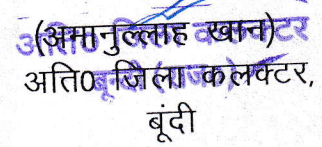 (अमानुल्लाह खान)
अति0 जिला कलक्टर,
बूंदी